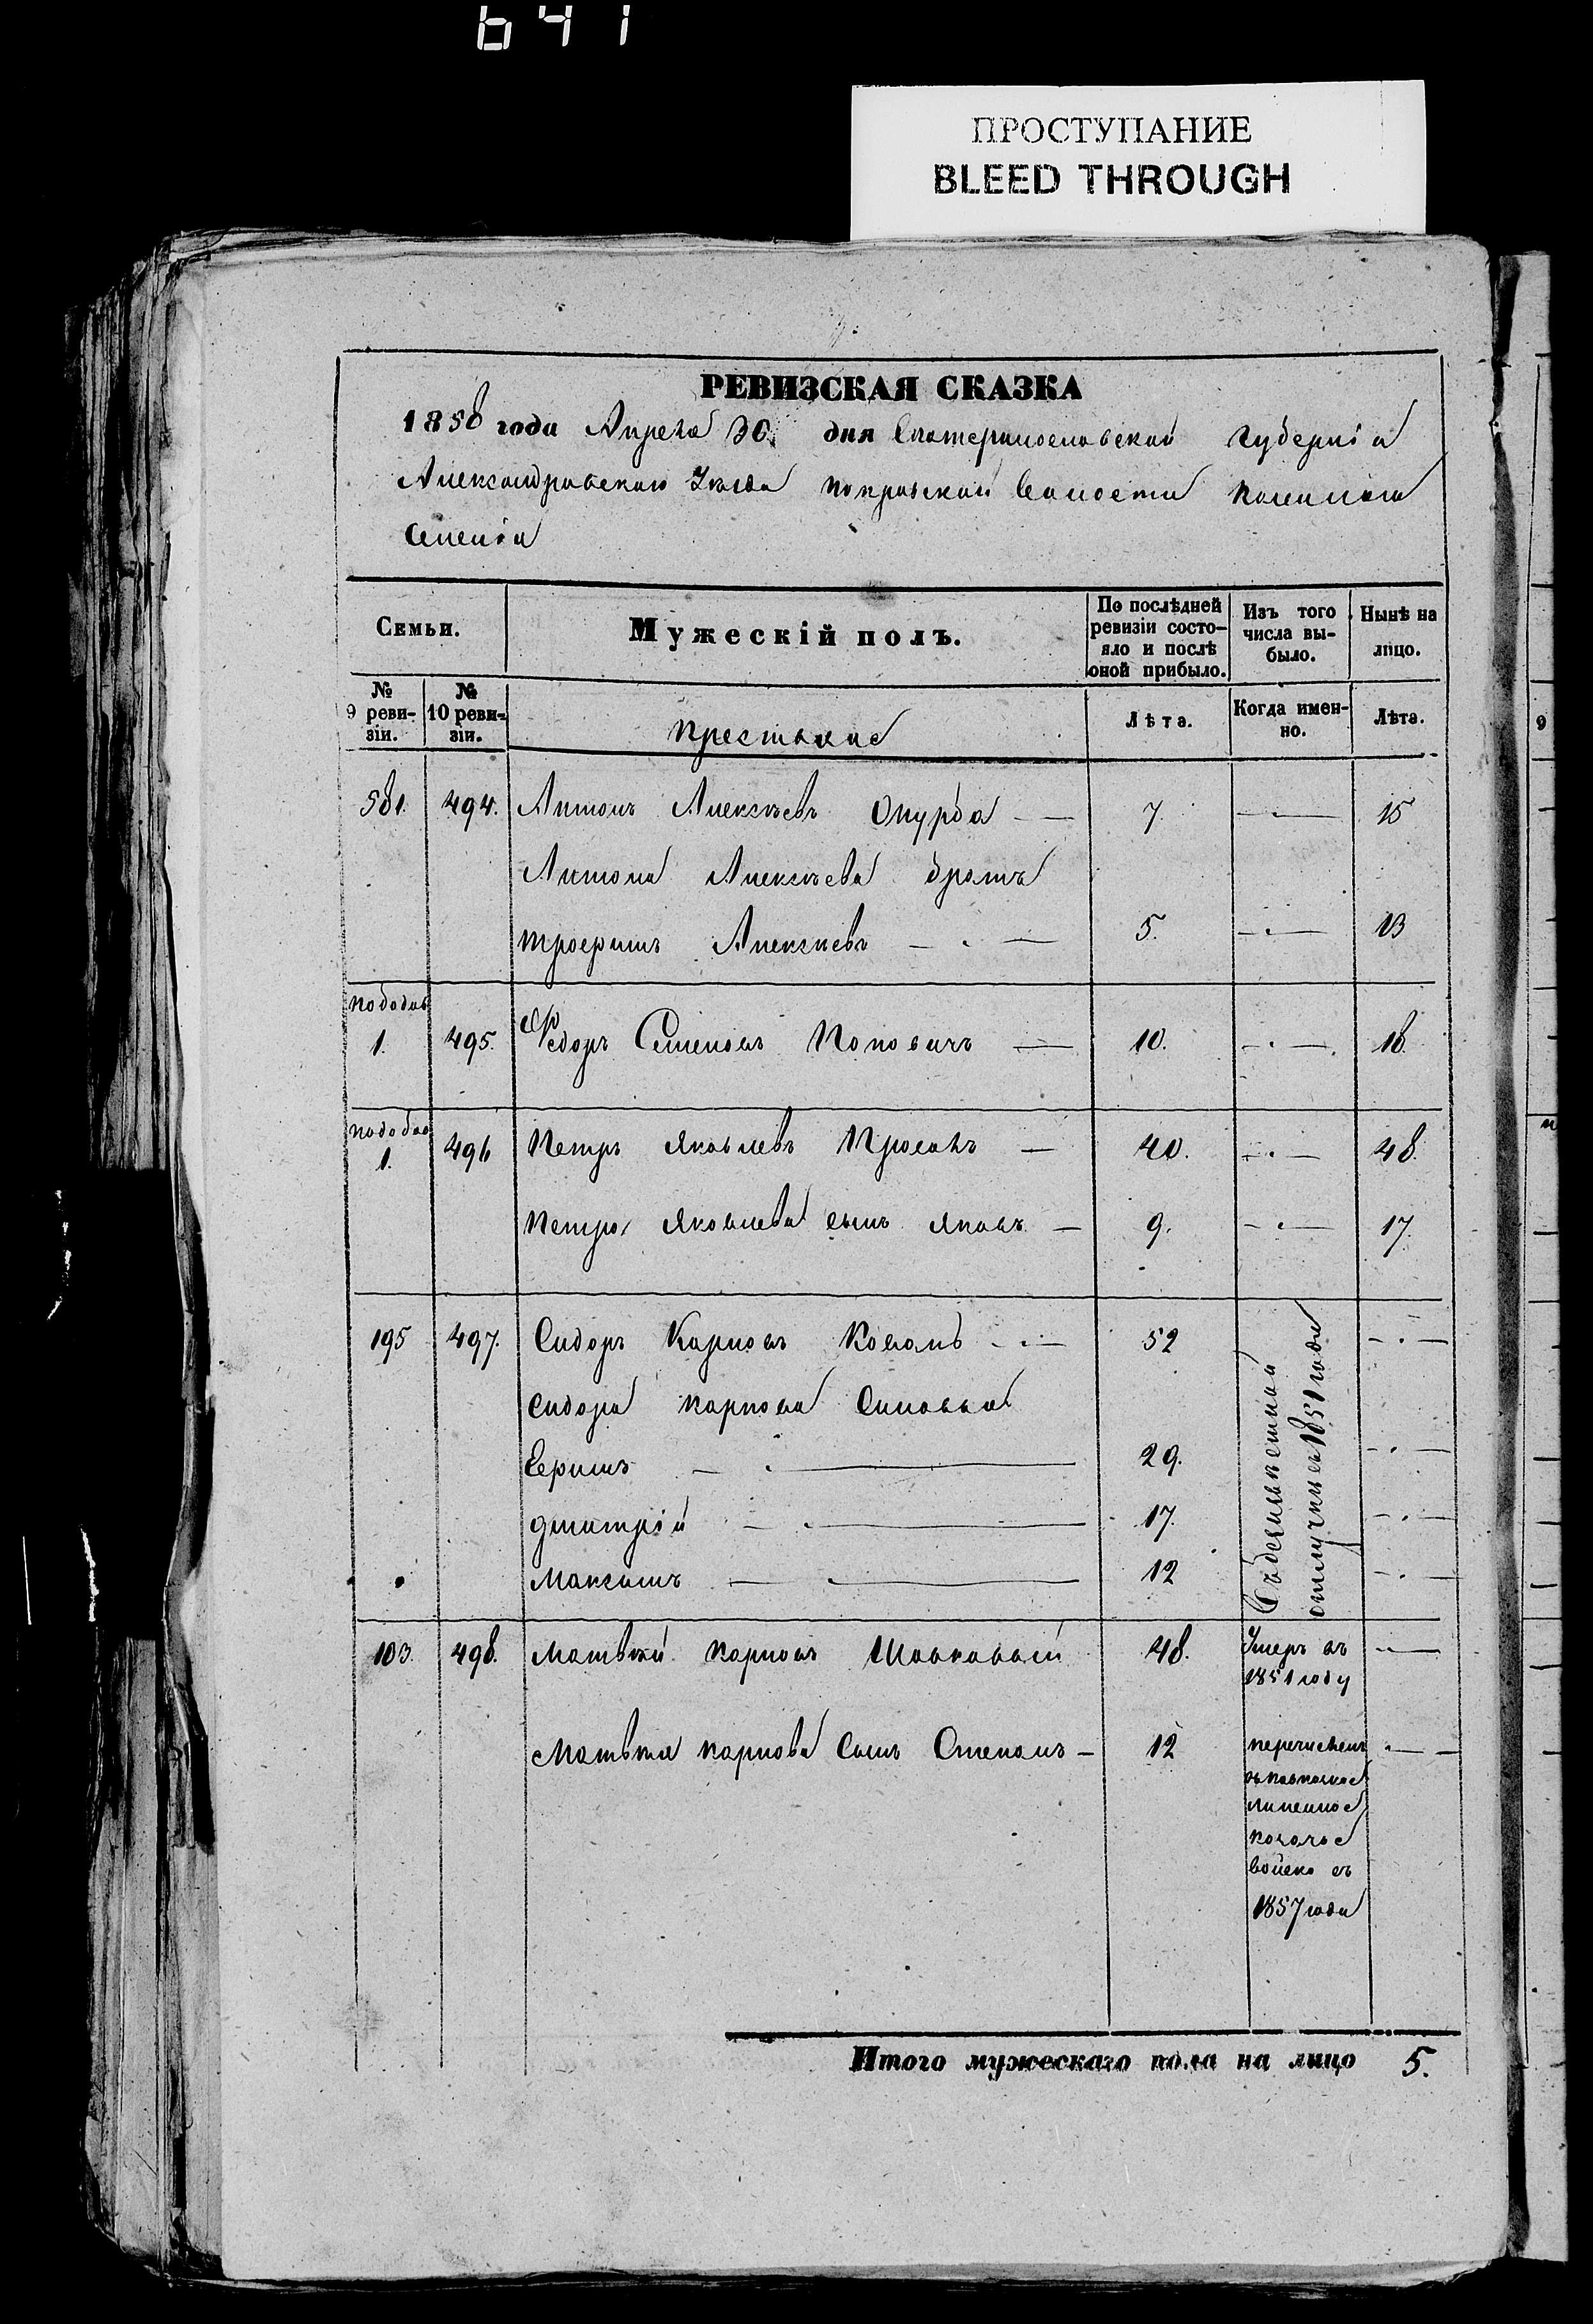 641
ПРОСТУПАНИЕ
BLEED THROUGH
РЕВИЗСКАЯ СКАЗКА
1858 года Апреля 30. дня Екатеринославской губернiи
Александровскаго Уезда Покровской Волости Казеннаго
Селенiя
Семьи.
Мужескій полъ.
По послѣдней ревизіи состо-
яло и послѣ
оной прибыло.
Изъ того
числа вы-
было.
Нынѣ на
лицо.
№
9 реви-
зіи.
№
10 реви-
зіи.
Лѣта.
Когда имен-
но.
Лѣта.
581. 494. Антонъ Алексѣевъ — 7. — 15
Антона Алексѣева братъ
Трофимъ Алексѣевъ — 5. — 13
1. 495. Федоръ Семеновъ Поповичъ — 10. — 18.
1. 496 Петръ Яковлевъ — 40. — 48.
Петра Яковлева сынъ Яковъ — 9. — 17.
195 497. Сидоръ Карповъ Коваль — 52 —
Сидора Карпова Сыновья
Ефимъ — 29. —
Дмитрій — 17. —
Максимъ — 12 —
отлучки съ 1851 года
103. 498. Матвѣй Карповъ 48. Умеръ въ —
1851 году
Матвѣя Карпова Сынъ Степанъ — 12 перечисленъ —
въ Кавказкое
линейное
козачье
войско съ
1857 года
Итого мужескаго пола на лицо 5.